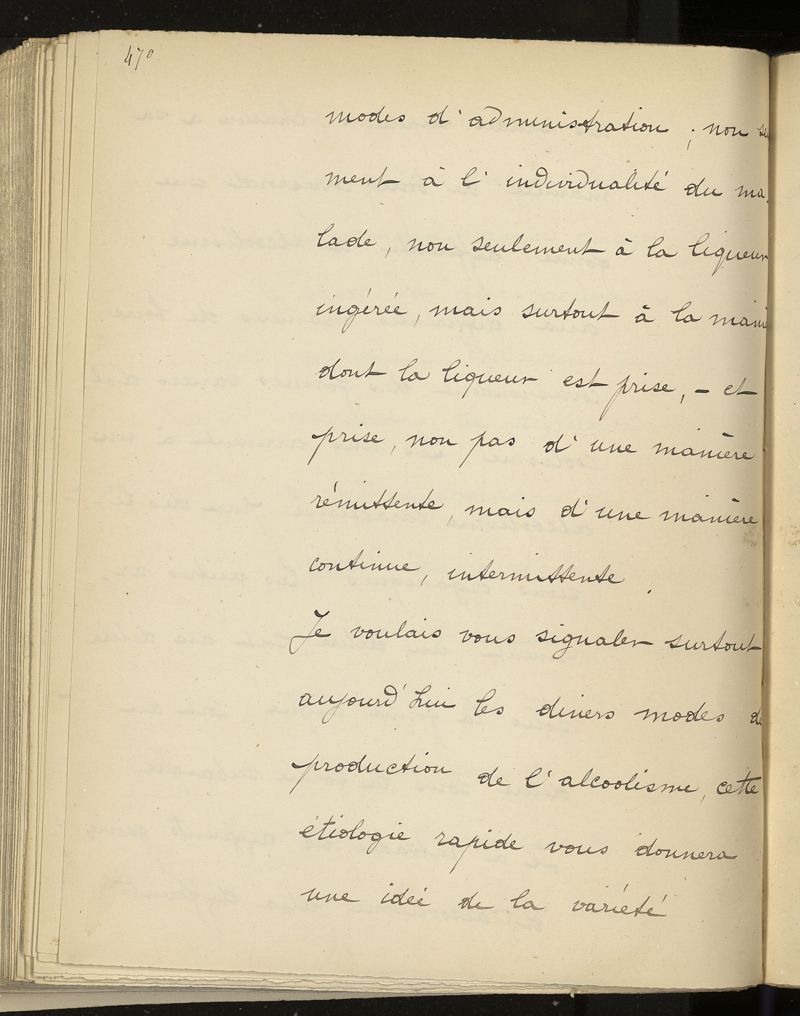 470
modes d'administration ; non seu
ment à l'individualité du ma-
lade, non seulement à la liqueur
ingérée, mais surtout à la mani
dont la liqueur est prise, - et
prise, non pas d'une manière
rémittente, mais d'une manière
continue, intermittente.
Je voulais vous signaler surtout
aujourd'hui les divers modes de
production de l'alcoolisme, cette
étiologie rapide vous donnera
une idée de la variété